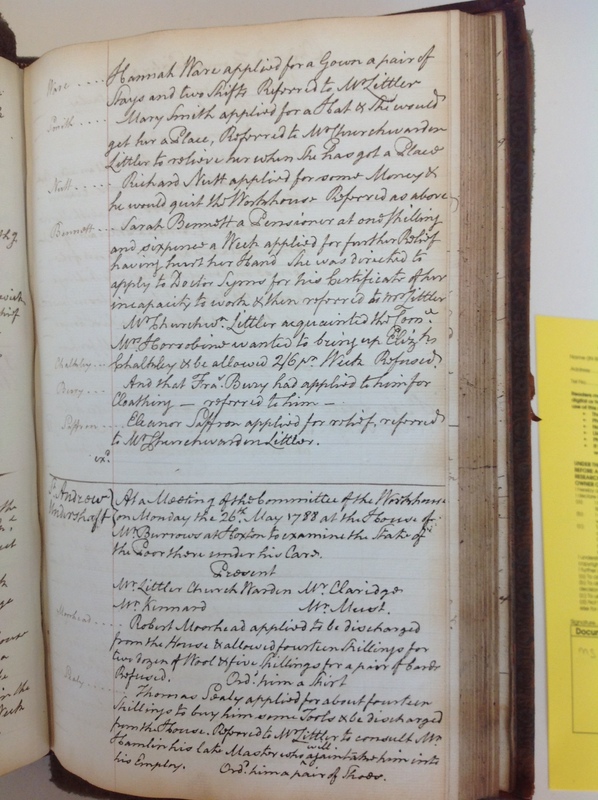 Ware .... Hannah Ware applied for a Gown a pair of
Stays and two Shifts Referred to Mr Littler
Smith .... Mary Smith applied for a Hat & She would
get her a Place, Referred to Mr Churchwarden
Littler to relieve her when She has got a Place
Nutt .... Richard Nutt applied for some Money &
he would quit the Workhouse Referred as above
Bennett .... Sarah Bennett a Pensioner at one Shilling
and sixpence a Week applied for further Relief
having hurt her Hand She was directed to
apply to Doctor Lyons for his Certificate of her
incapacity to work & then referred to Mr Littler
Mr Churchwn. Littler acquainted the Comee.
Mrs Horrobine wanted to bring up Elizth
Chalkley .... Chalkley & be allowed 2/6 pr. Week Refused.
Bury .... And that Fras. Bury had applied to him for
Cloathing — referred to him —
Saffron .... Eleanor Saffron applied for relief, referred
to Mr Churchwarden Littler.
exd.
St. Andrew
Undershaft
At a Meeting of the Committee of the Workhouse
on Monday the 26th. May 1788 at the House of
Mr Burrows at Hoxton to examine the State of
the Poor there under his Care.
Present
Mr Littler Church Warden Mr Claridge
Mr Kinnard Mr Must.
Moorhead .... Robert Moorhead applied to be discharged
from the House & allowed fourteen Shillings for
two dozen of Wool & five Shillings for a pair of Cards
Refused. Ord. him a Shirt
Sealy .... Thomas Sealy applied for about fourteen
Shillings to buy him some Tools & be discharged
from the House. Referred to Mr Littler to consult Mr
Hamlin his late Master who will again take him into
his Employ. Ord. him a pair of Shoes.